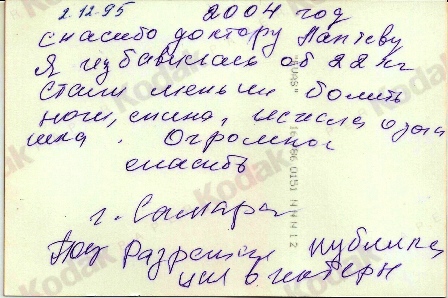 2.12.95 2004 год
спасибо доктору Лаптеву
Я избавилась об 22 кг
стали меньше болеть
ноги, спина, исчезла одыш
шка. Огромное
спасибо
г. Самара
Разрешаю публика
ции в интерн
Kodak